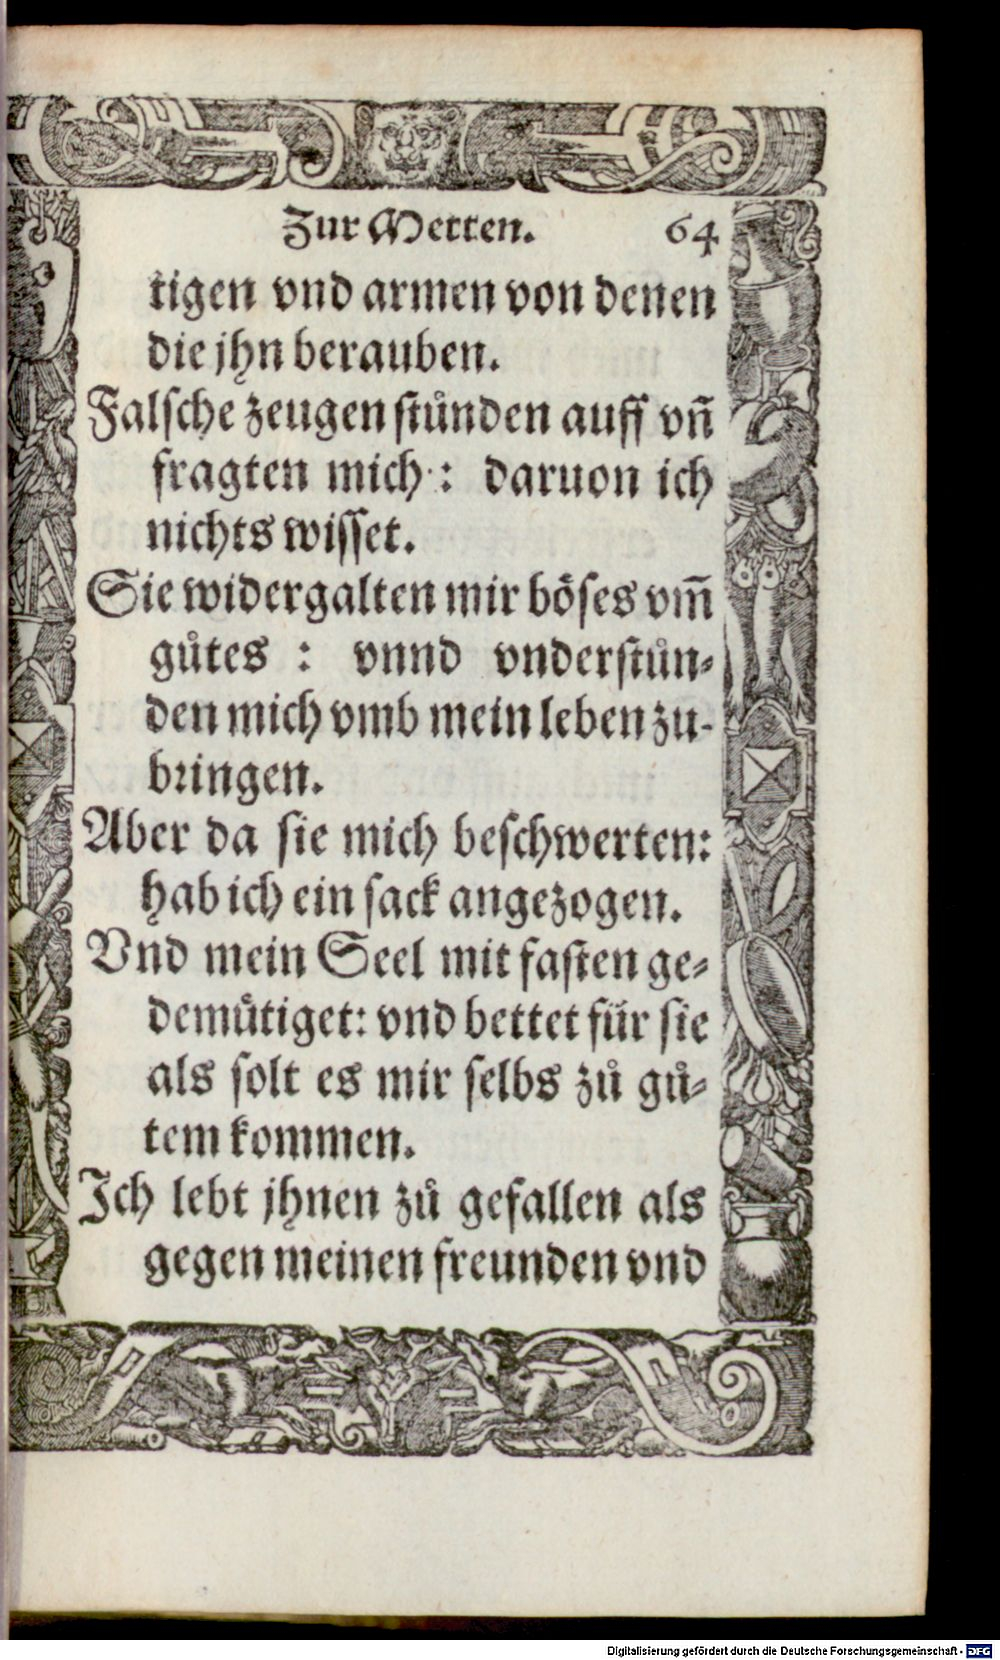 Zur Metten. 64
tigen vnd armen von denen
die jhn berauben.
Falsche zeugen stůnden auff vñ
fragten mich : daruon ich
nichts wisset.
Sie widergalten mir böses vm̃
gůtes : vnnd vnderstůn-
den mich vmb mein leben zu-
bringen.
Aber da sie mich beschwerten:
hab ich ein sack angezogen.
Vnd mein Seel mit fasten ge-
demütiget: vnd bettet für sie
als solt es mir selbs zů gů-
tem kommen.
Ich lebt jhnen zů gefallen als
gegen meinen freunden vnd
Digitalisierung gefördert durch die Deutsche Forschungsgemeinschaft - DFG